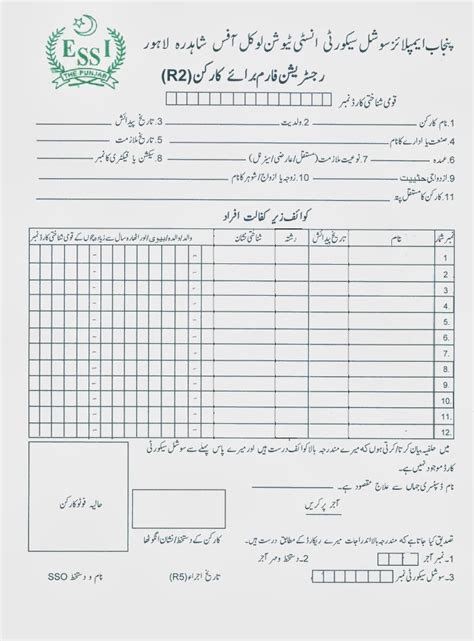 ESSI
THE PUNJAB
پنجاب ایمپلائز سوشل سیکورٹی انسٹی ٹیوشن لوکل آفس شاہدرہ لاہور
رجسٹریشن فارم برائے کارکن (R2)
قومی شناختی کارڈ نمبر
1۔نام کارکن 2۔ولدیت 3۔تاریخ پیدائش
4۔صنعت یا ادارے کا نام 5۔تاریخ ملازمت
6۔عہدہ 7۔نوعیت ملازمت (مستقل/عارضی/سیزنل) 8۔سیکشن یا فیکٹری کا نمبر
9۔ازدواجی حثییت 10۔زوجہ یا ازواج/شوہر کا نام
11۔کارکن کا مستقل پتہ
کوائف زیر کفالت افراد
نمبر شمار نام تاریخ پیدائش رشتہ شناختی نشان والد/والدہ/بیوی/اور اٹھارہ سال سے زیادہ بچوں کے قومی شناختی کارڈ نمبر
1.
2.
3.
4.
5.
6.
7.
8.
9.
10.
11.
12.
میں حلفیہ بیان کرتا/کرتی ہوں کہ میرے مندرجہ بالا کوائف درست ہیں اور میرے پاس پہلے سے سوشل سیکورٹی
کارڈ موجود نہیں ہے۔
نام ڈسپنسری جہاں سے علاج مقصود ہے۔
آجر پر کریں
حالیہ فوٹو کارکن
کارکن کے دستخط/نشان انگوٹھا
تصدیق کیا جاتا ہے کہ مندرجہ بالا اندراجات میرے ریکارڈ کے مطابق درست ہیں۔
1۔نمبر آجر 2۔دستخط و مہر آجر
3۔سوشل سیکورٹی نمبر تاریخ اجراء (R5) نام و دستخط SSO